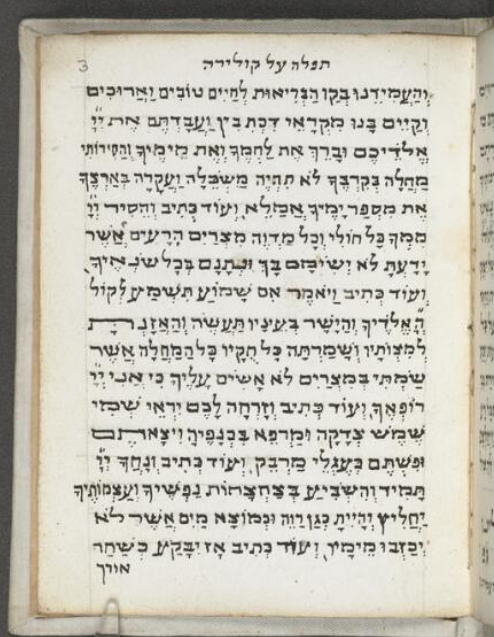 3
תפלה על קולירה
וְהַעֲמִידֵנוּ בְּקַו הַבְּרִיאוּת לְחַיִּים טוֹבִים וַאֲרוּכִים
וְקַיֵּים בָּנוּ מִקְרָאֵי דִּכְתִיב וַעֲבַדְתֶּם אֶת יְיָ
אֱלֹדֵיכֶם וּבֵרַךְ אֶת לַחְמְךָ וְאֶת מֵימֶיךָ וַהֲסִירוֹתִי
מַחֲלָה מִקִּרְבֶּךָ לֹא תִהְיֶה מְשַׁכֵּלָה וַעֲקָרָה בְּאַרְצֶךָ
אֶת מִסְפַּר יָמֶיךָ אֲמַלֵּא, וְעוֹד כְּתִיב וְהֵסִיר יְיָ
מִמְּךָ כָּל חוֹלִי וְכָל מַדְוֵה מִצְרַיִם הָרָעִים אֲשֶׁר
יָדַעְתָּ לֹא יְשִׂימָם בָּךְ וּנְתָנָם בְּכָל שֹׂנְאֶיךָ,
וְעוֹד כְּתִיב וַיֹּאמֶר אִם שָׁמוֹעַ תִּשְׁמַע לְקוֹל
יְיָ אֱלֹדֶיךָ וְהַיָּשָׁר בְּעֵינָיו תַּעֲשֶׂה וְהַאֲזַנְתָּ
לְמִצְוֹתָיו וְשָׁמַרְתָּ כָּל חֻקָּיו כָּל הַמַּחֲלָה אֲשֶׁר
שַׂמְתִּי בְמִצְרַיִם לֹא אָשִׂים עָלֶיךָ כִּי אֲנִי יְיָ
רוֹפְאֶךָ, וְעוֹד כְּתִיב וְזָרְחָה לָכֶם יִרְאֵי שְׁמִי
שֶׁמֶשׁ צְדָקָה וּמַרְפֵּא בִּכְנָפֶיהָ וִיצָאתֶם
וּפִשְׁתֶּם כְּעֶגְלֵי מַרְבֵּק, וְעוֹד כְּתִיב וְנָחֲךָ יְיָ
תָּמִיד וְהִשְׂבִּיעַ בְּצַחְצָחוֹת נַפְשֶׁיךָ וְעַצְמוֹתֶיךָ
יַחֲלִיץ וְהָיִיתָ כְּגַן רָוֶה וּכְמוֹצָא מַיִם אֲשֶׁר לֹא
יְכַזְּבוּ מֵימָיו, וְעוֹד כְּתִיב אָז יִבָּקַע כַּשַּׁחַר
אורך